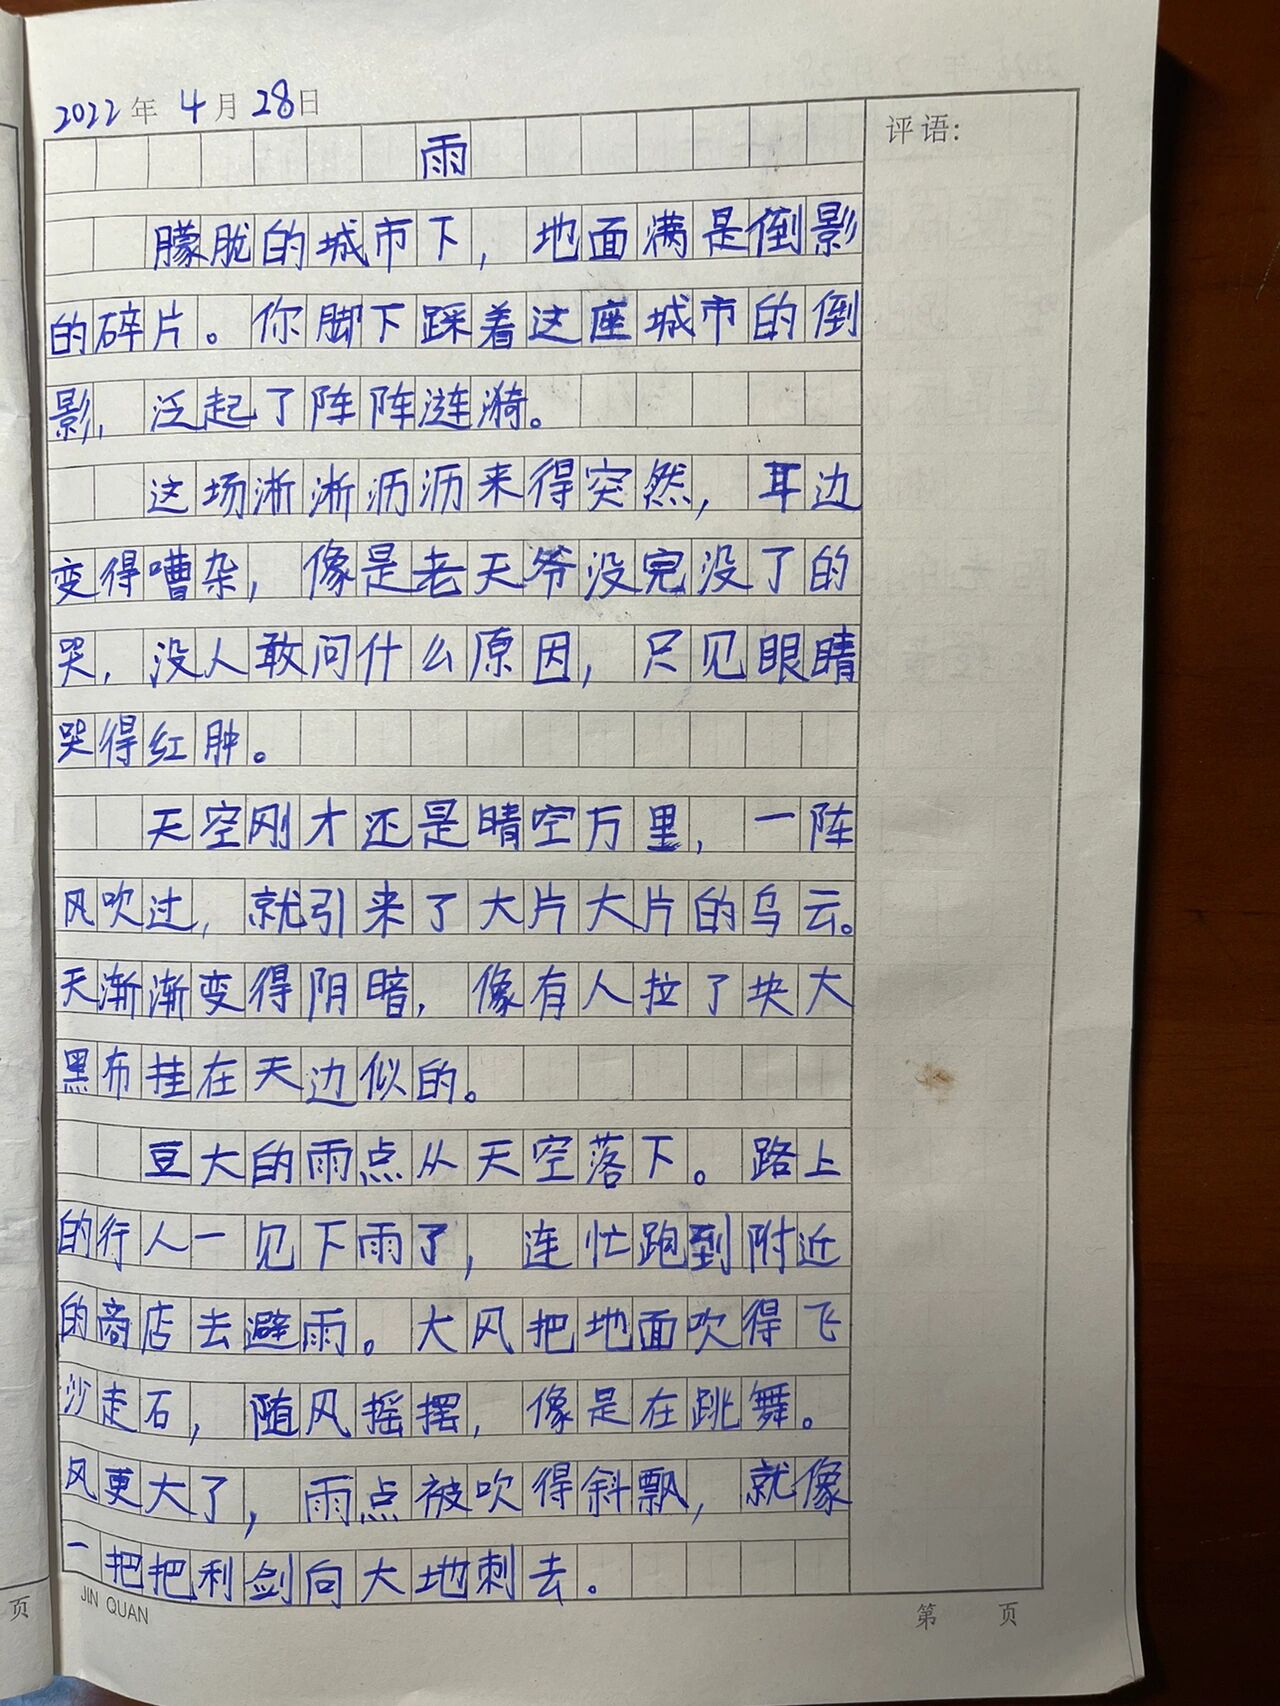 2022年 4月28日
评语:
雨
朦胧的城市下，地面满是倒影
的碎片。你脚下踩着这座城市的倒
影，泛起了阵阵涟漪。
这场淅淅沥沥来得突然，耳边
变得嘈杂，像是老天爷没完没了的
哭，没人敢问什么原因，只见眼睛
哭得红肿。
天空刚才还是晴空万里，一阵
风吹过，就引来了大片大片的乌云。
天渐渐变得阴暗，像有人拉了块大
黑布挂在天边似的。
豆大的雨点从天空落下。路上
的行人一见下雨了，连忙跑到附近
的商店去避雨。大风把地面吹得飞
沙走石，随风摇摆，像是在跳舞。
风更大了，雨点被吹得斜飘，就像
一把把利剑向大地刺去。
页
JIN QUAN
第 页